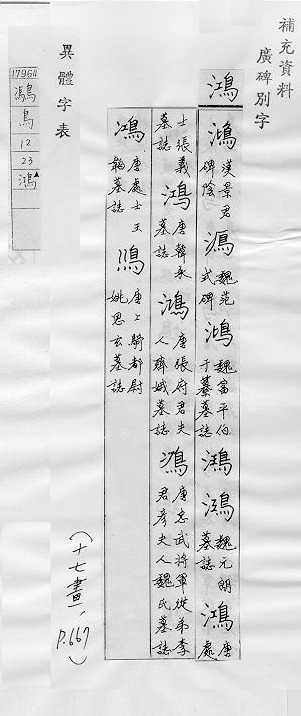 補充資料
廣碑別字
鴻
鴻 漢景君碑陰 鴻 魏范式碑 鴻 魏富平伯于纂墓誌 鴻 鴻 魏元朗墓誌 鴻 唐處
士張義墓誌 鴻 唐韓承墓誌 鴻 唐張府君夫人 墓誌 鴻 唐忠武將軍從弟李君彥夫人魏氏墓誌
鴻 唐處士王 墓誌 唐上騎都尉姚思玄墓誌
異體字表
17964
鳥
12
23
鴻
(十七畫)
P.667